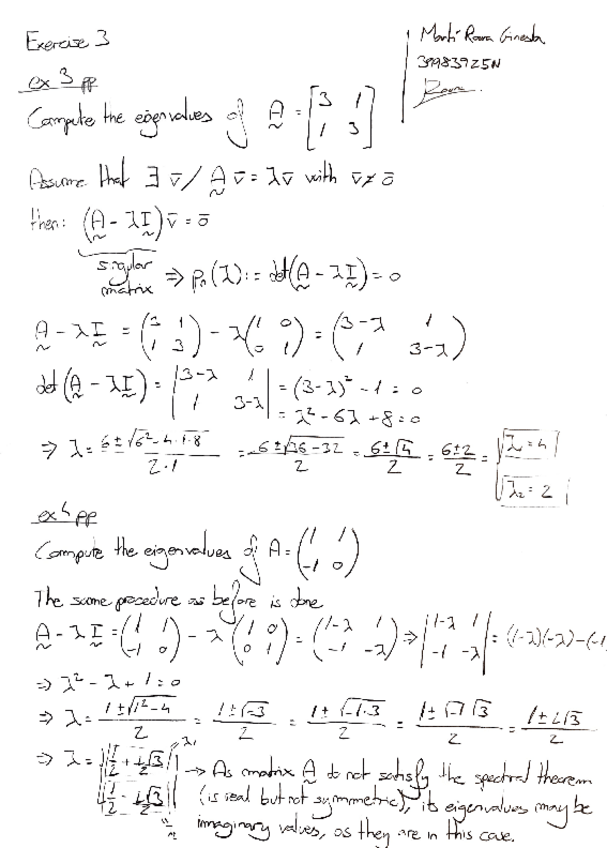 Exercise 3
Martí Roura Ginesta
39983925N
ex 3 pp
Compute the eigenvalues of A = [3 1; 1 3]
Assume that ∃ v̄ / A v̄ = λv̄ with v̄ ≠ ō
then: (A - λI) v̄ = ō
singular matrix ⇒ pₙ(λ) := det(A - λI) = 0
A - λI = (3 1; 1 3) - λ(1 0; 0 1) = (3-λ 1; 1 3-λ)
det(A - λI) = |3-λ 1; 1 3-λ| = (3-λ)² - 1 = 0
= λ² - 6λ + 8 = 0
⇒ λ = (6 ± √(6² - 4·1·8))/(2·1) = (6 ± √(36-32))/2 = (6 ± √4)/2 = (6 ± 2)/2 = λ₁ = 4
λ₂ = 2
ex 4 pp
Compute the eigenvalues of A = (1 1; -1 0)
The same procedure as before is done
A - λI = (1 1; -1 0) - λ(1 0; 0 1) = (1-λ 1; -1 -λ) ⇒ |1-λ 1; -1 -λ| = (1-λ)(-λ)-(-1
⇒ λ² - λ + 1 = 0
⇒ λ = (1 ± √(1²-4))/2 = (1 ± √-3)/2 = (1 ± √(-1·3))/2 = (1 ± √-1 √3)/2 = (1 ± i√3)/2
⇒ λ = 1/2 + i√3/2 λ₁ → As matrix A do not satisfy the spectral theorem
1/2 - i√3/2 (is real but not symmetric), its eigenvalues may be
imaginary values, as they are in this case.